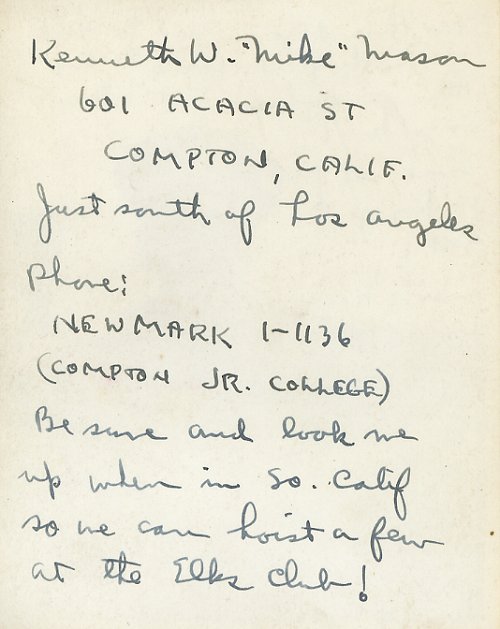 Kenneth W. "Mike" Mason
601 ACACIA ST
COMPTON, CALIF.
Just south of Los Angeles
Phone:
NEWMARK 1-1136
(COMPTON JR. COLLEGE)
Be sure and look me
up when in So. Calif
so we can hoist a few
at the Elks Club!